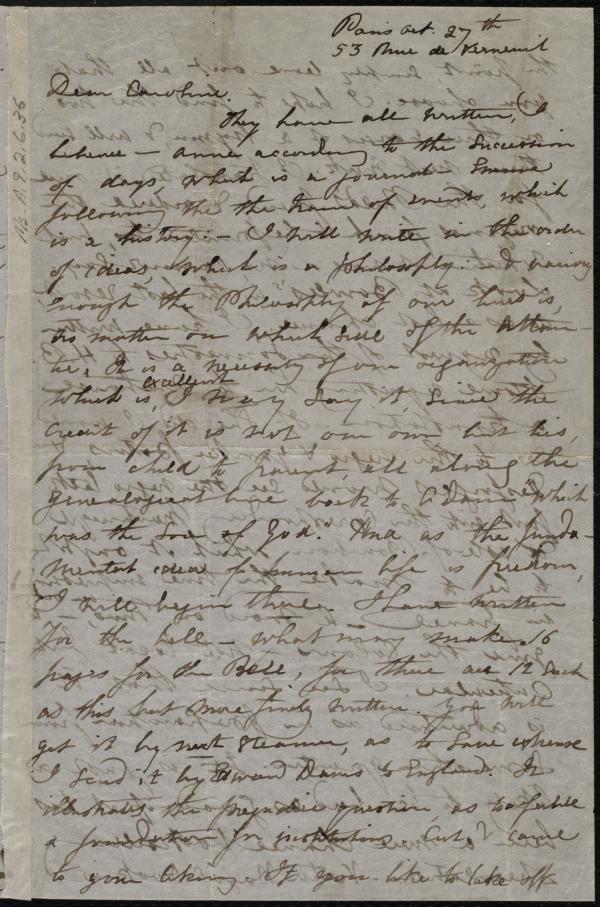 Paris Oct. 27th
53 Rue de Verneuil
Dear Caroline.
They have all written, (I
believe - Anne according to the succession
of days, which is a journal. Emma
following the the train of events, which
is a history; - I will write in the order
of ideas which is a philosophy. -
enough the Philosophy of our is,
no matter on which side of the Atlan-
tic. It is a necessity of our organization
which is excellent, I may say it, since the
credit of it is not our own but his,
from child to parent, all along the
genealogical line back to "Adam" which
was the Son of God." And as the funda-
mental idea of human life is freedom,
I will begin there. I have written
for the bell - what may make 16
pages for the Bell, for there are 12 such
as this but more finely written. You will
get it by next steamer, as to save expense
I send it by Edward Davis to England. It
illustrates the prejudice question, as to
a foundation for institutions. Cut & carve
to your liking. If you like to take off
Ms. A.9.2.6.36